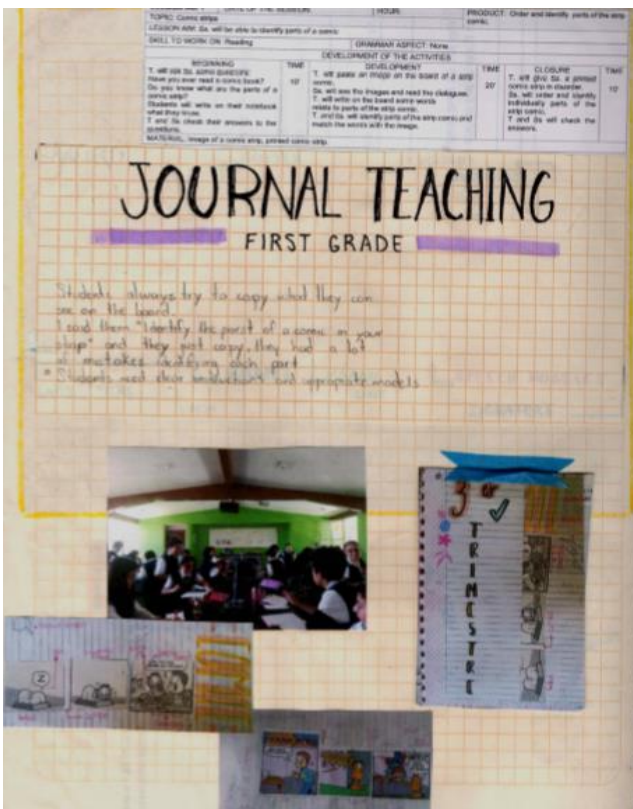 DATE OF THE SESSION: HOUR: PRODUCT: Order and identify parts of the strip comic.
TOPIC: Comic strips
LESSON AIM: Ss. will be able to identify parts of a comic
SKILL TO WORK ON: Reading GRAMMAR ASPECT: None
DEVELOPMENT OF THE ACTIVITIES
BEGINNING TIME DEVELOPMENT TIME CLOSURE TIME
T. will ask Ss. some questions:
Have you ever read a comic book?
Do you know what are the parts of a
comic strip?
Students will write on their notebook
what they know.
T and Ss check their answers to the
questions.
10'
T. will paste an image on the board of a strip
comic.
Ss. will see the images and read the dialogues.
T. will write on the board some words
relate to parts of the strip comic.
T. and Ss. will identify parts of the strip comic and
match the words with the image.
20'
T. will give Ss. a printed
comic strip in disorder.
Ss. will order and identify
individually parts of the
strip comic.
T and Ss will check the
answers.
10'
MATERIAL: Image of a comic strip, printed comic strip.
JOURNAL TEACHING
FIRST GRADE
Students always try to copy what they can
see on the board.
I said them "Identify the parst of a comic in your
and they just copy, they had a lot
of mistakes identifying each part
* Students need clear instructions and appropriate models
3er
TRIMESTRE
Z